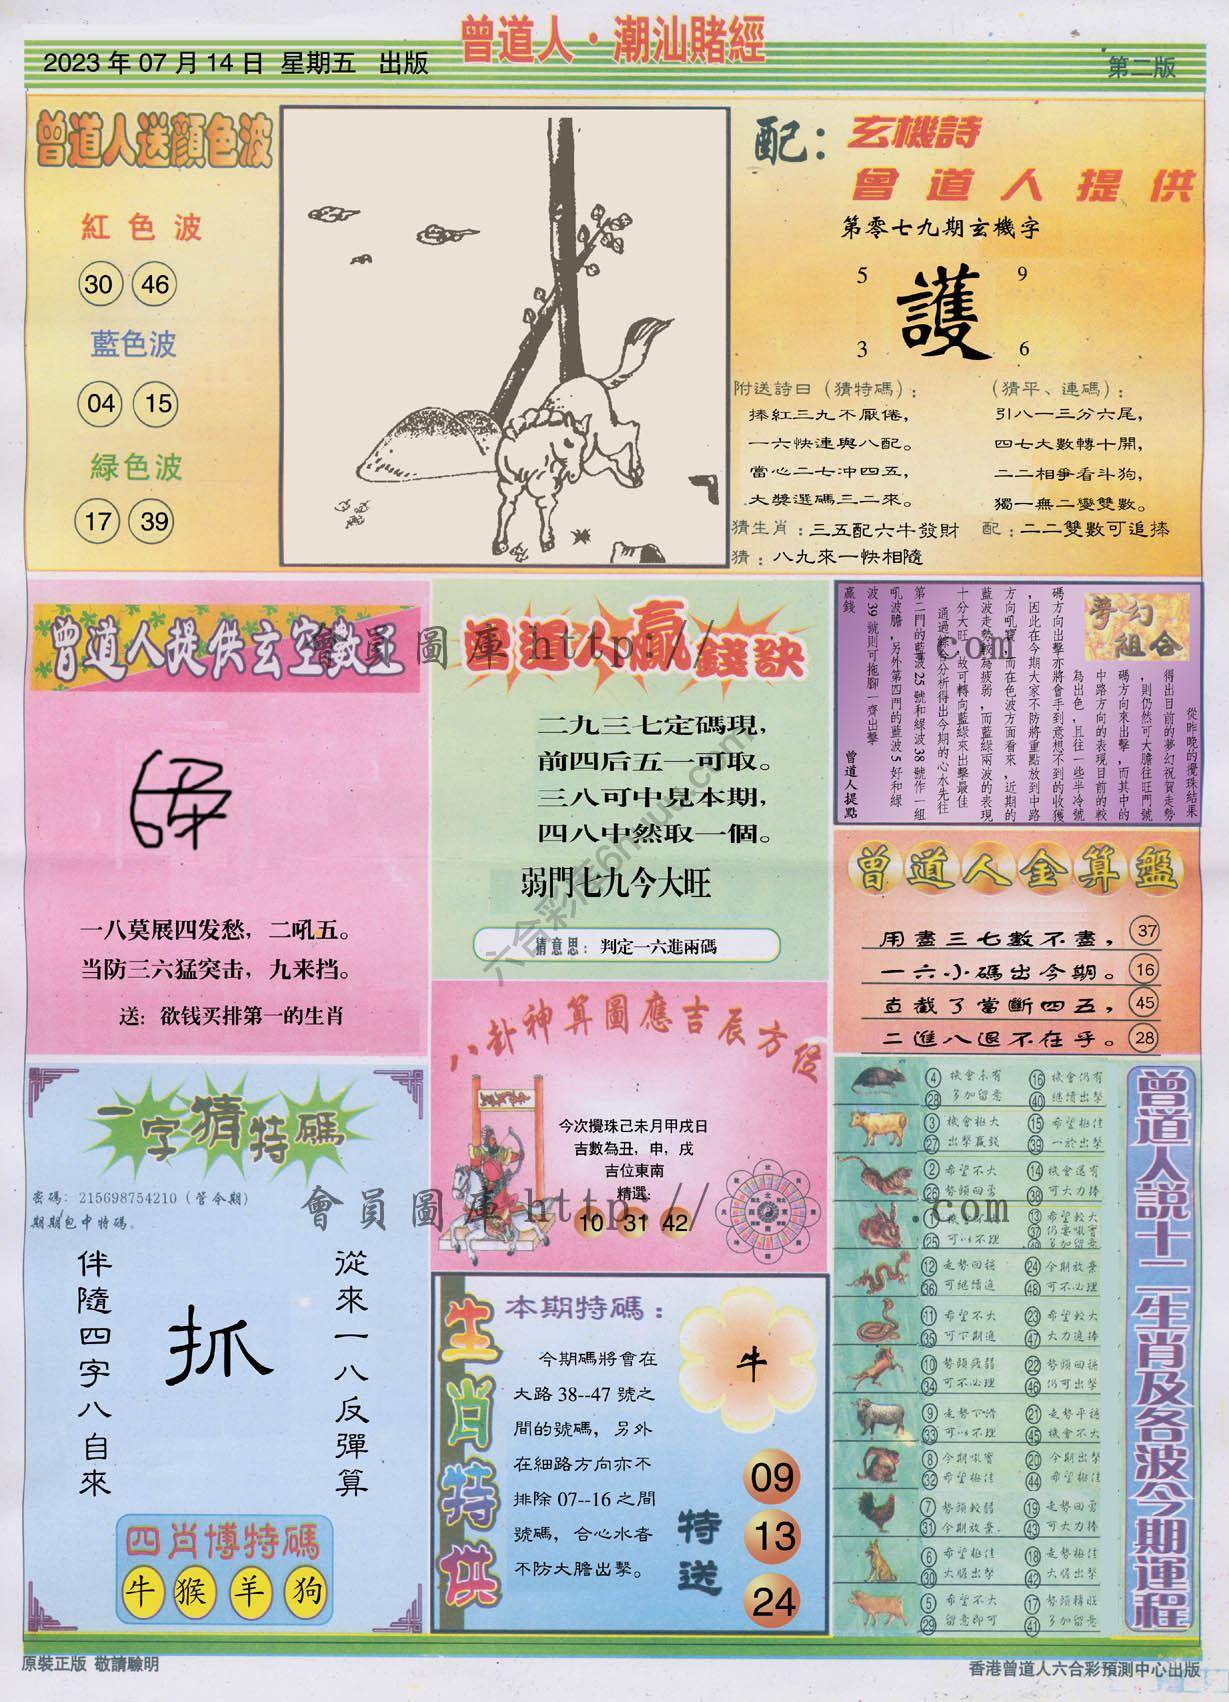 曾道人·潮汕賭經
2023年07月14日 星期五 出版
第二版
曾道人送顏色波
紅色波
30 46
藍色波
04 15
緑色波
17 39
配：
玄機詩
曾道人提供
第零七九期玄機字
5 9
護
3 6
附送詩曰（猜特碼）：
捧紅三九不厭倦，
一六快連與八配。
當心二七冲四五，
大獎選碼三二來。
（猜平、連碼）：
引八一三分六尾，
四七大數轉十開，
二二相爭看斗狗，
獨一無二變雙數。
猜生肖：三五配六牛發財
配：二二雙數可追捧
猜：八九來一快相隨
曾道人提供玄空數王
一八莫展四发愁，二吼五。
当防三六猛突击，九来挡。
送：欲钱买排第一的生肖
曾道人贏錢訣
二九三七定碼現，
前四后五一可取。
三八可中見本期，
四八中然取一個。
弱門七九今大旺
猜意思：判定一六進兩碼
夢幻組合
從昨晚的攪珠結果
得出目前的夢幻祝賀走勢
，則仍然可大膽往旺門號
碼方向來出擊，而其中的
中路方向的表現目前的較
為出色，且往一些半冷號
碼方向出擊亦將會手到意想不到的收獲
，因此在今期大家不防將重點放到中路
方向吼寶，而在色波方面看來，近期的
藍波走勢較為疲弱，而藍綠兩波的表現
十分大旺，故可轉向藍綠來出擊最佳
通過綜合分析得出今期的心水先往
第二門的藍波25號和綠波38號作一組
吼波膽，另外第四門的藍波5好和綠
波39號則可拖腳一齊出擊
贏錢
曾道人提點
曾道人金算盤
用盡三七數不盡， 37
一六小碼出今期。 16
直截了當斷四五， 45
二進八退不在乎。 28
八卦神算圖應吉辰方位
今次攪珠己未月甲戌日
吉數為丑，申，戌
吉位東南
精選：
10 31 42
一字猜特碼
密碼：215698754210（管今期）
期期包中特碼。
從來一八反彈算
抓
伴隨四字八自來
四肖博特碼
牛 猴 羊 狗
生肖特供
本期特碼：
今期碼將會在
大路38--47號之
間的號碼，另外
在細路方向亦不
排除07--16之間
號碼，合心水者
不防大膽出擊。
牛
特送
09
13
24
曾道人説十二生肖及各波今期運程
4 機會未有 16 機會仍有
28 多加留意 40 繼續出擊
3 機會極大 15 希望極佳
27 出擊贏錢 39 一於出擊
2 希望不大 14 機會還有
26 勢頭回勇 38 可大力捧
1 機會不大 13 希望較大
25 可以不理 37 仍要吼實
49 多加留意
12 走勢回穩 24 今期放棄
36 可繼續追 48 可不必理
11 希望不大 23 希望較大
35 可下期追 47 大力追捧
10 勢頭疲弱 22 勢頭回穩
34 可不必理 46 仍可出擊
9 走勢下滑 21 走勢平穩
33 可以不理 45 機會不大
8 今期吼實 20 今期出擊
32 希望極佳 44 希望極佳
7 勢頭較弱 19 走勢回勇
31 今期放棄. 43 可大力捧
6 希望極佳 18 走勢極佳
30 大膽出擊 42 大膽出擊
5 希望不大 17 勢頭轉旺
29 留意即可 41 多加留意
會員圖庫 http:// .com
會員圖庫 http:// .com
原裝正版 敬請驗明
香港曾道人六合彩預測中心出版